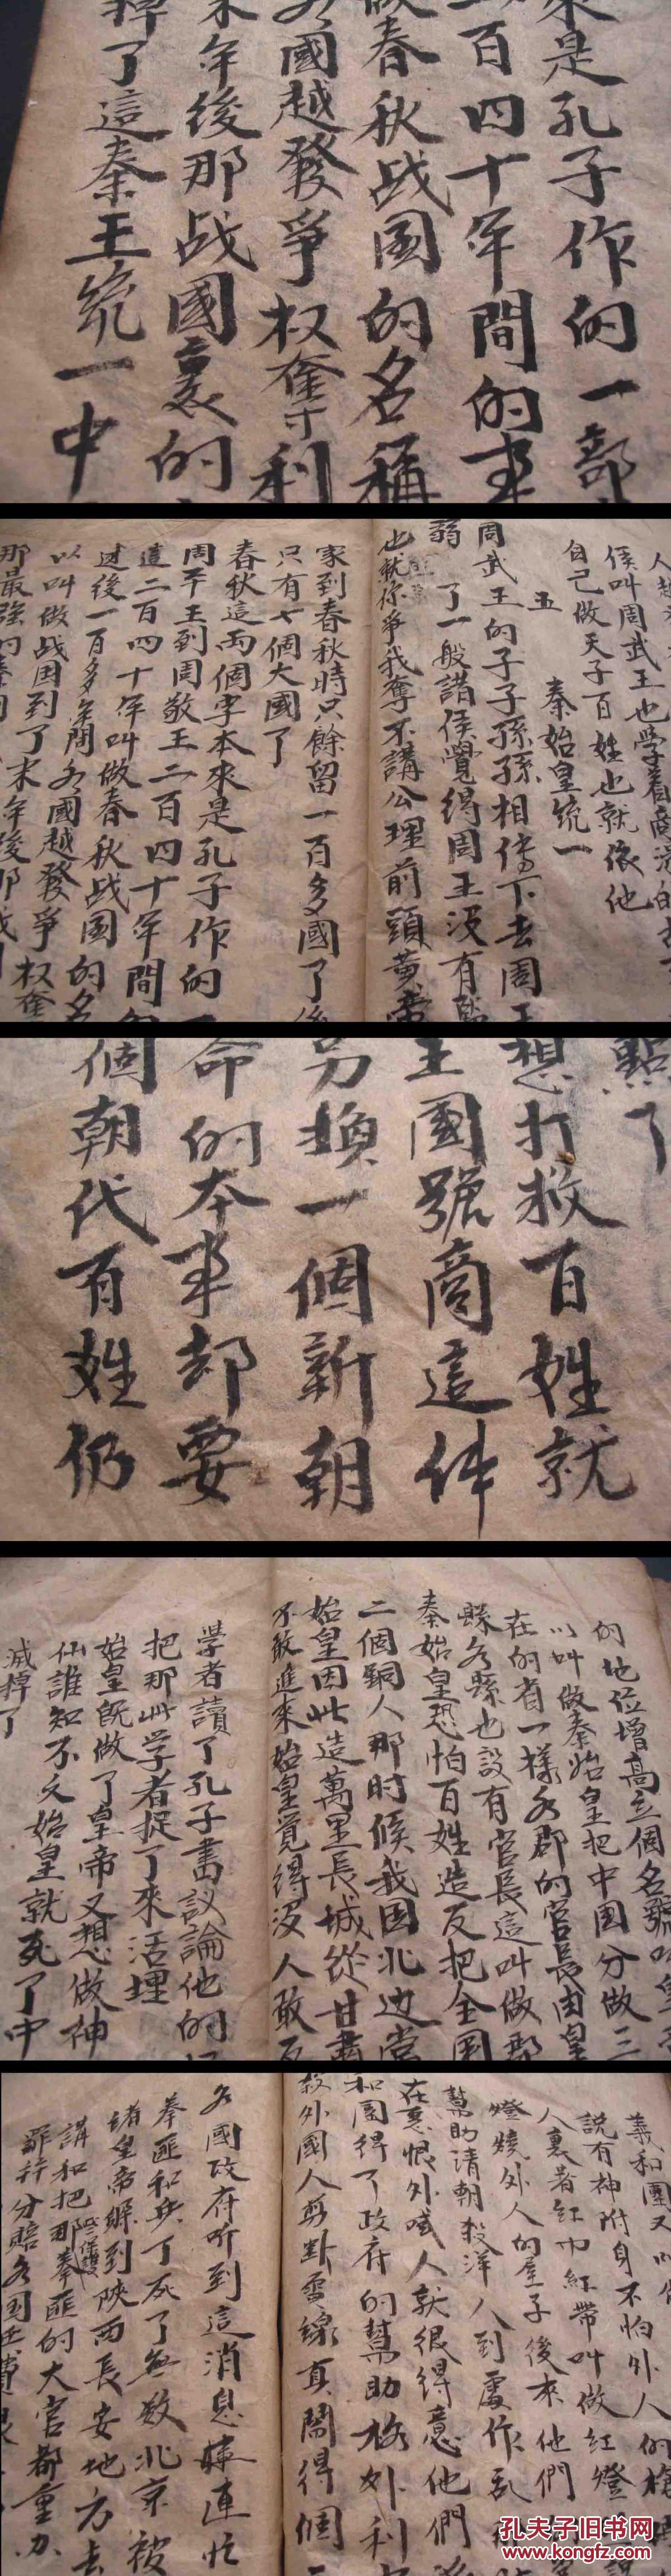 來是孔子作的一部
百四十年間的事
做春秋战国的名稱
國越發爭权奪利
末年後那战國裏的
掉了這秦王統一中
侯叫周武王也学着商湯的
自己做天子百姓也就依他
五　秦始皇統一
周武王的子子孫孫相傳下去周王
弱了一般諸侯覺得周王没有
也就你爭我奪不講公理前頭黄帝
家到春秋時只餘留一百多國了後
只有七個大國了
春秋這兩個字本來是孔子作的一
周平王到周敬王二百四十年間
這二百四十年叫做春秋战国的名
过後一百多年間各國越發爭权奪
以叫做战国到了末年後那战
那最強的秦
點了
想打救百姓就
王國號商這件
另換一個新朝
命的本事却要
個朝代百姓仍
的地位增高立個名號叫皇
以叫做秦始皇把中国分做三
在的省一樣各郡的官長由皇
縣各縣也設有官長這叫做郡
秦始皇恐怕百姓造反把全国
二個銅人那时候我国北边常
始皇因此造萬里長城從甘肅
不敢進來始皇覚得没人敢反
学者讀了孔子書議論他的
把那些学者捉了來活埋
始皇既做了皇帝又想做神
仙誰知不久始皇就死了中
滅掉了
義和團又叫做
説有神附身不怕外人的槍
人裏着紅巾紅帶叫做紅燈
燈燒外人的屋子後來他們
幫助清朝殺洋人到處作乱
在惠恨外咸人就很得意他們
和團得了政府的幫助格外利
殺外國人剪断電線真鬧得個
各國政府听到這消息連忙
拳匪和兵丁死了無数北京被
緒皇帝解到陝西長安地方去
講和把那拳匪的大官都重办
罪行分賠各国